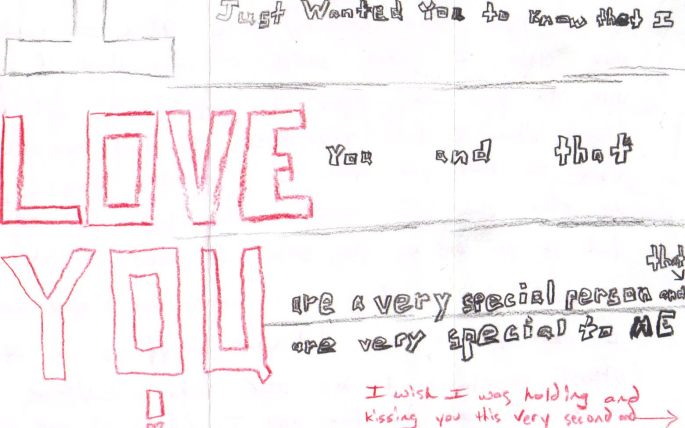 I
Just Wanted You to Know that I
LOVE
You and that
YOU
that
are a very special person and
are very special to ME
!
I wish I was holding and
kissing you this very second and